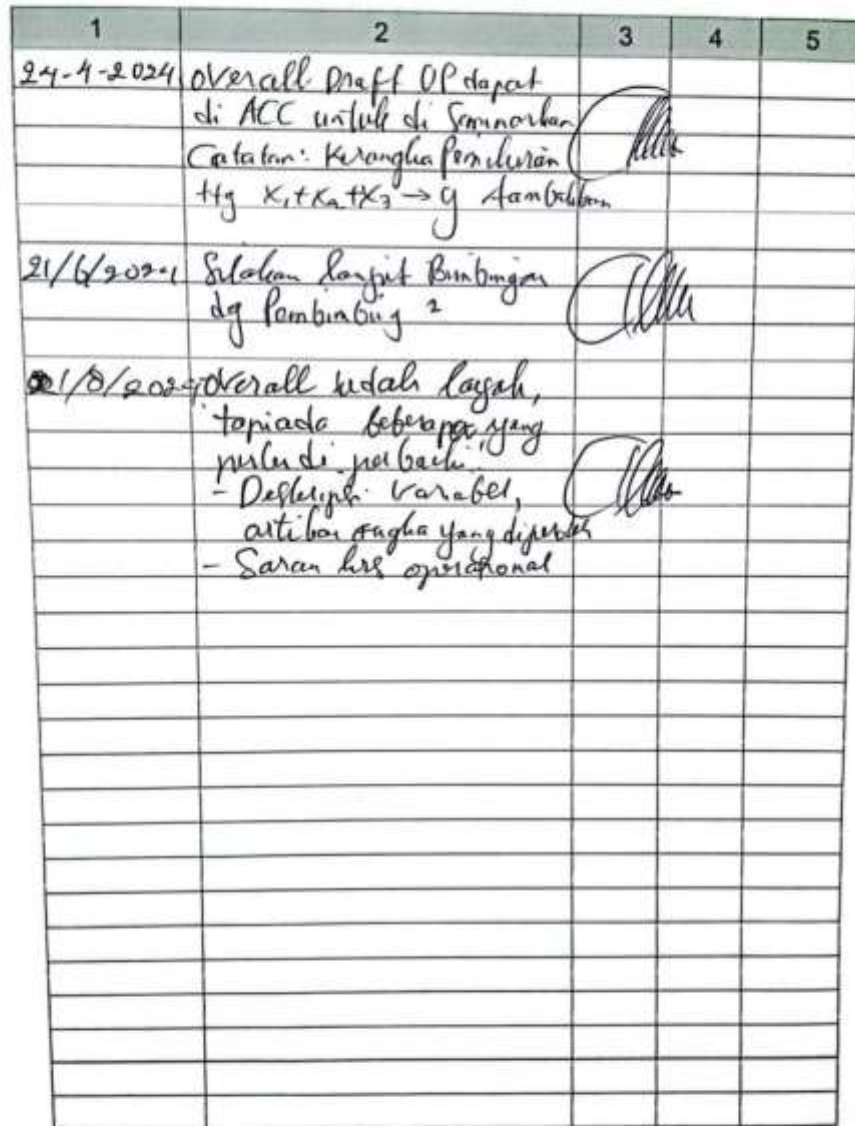 1 2 3 4 5
24-4-2024 overall Draft UP dapat
di ACC untuk di Seminarkan
Catatan: Kerangka Pemikiran
Hg X1+X2+X3 → y tambahkan
21/6/2024 Silakan lanjut Bimbingan
dg Pembimbing 2
21/8/2024 overall sudah layak,
tapi ada beberapa yang
perlu di perbaiki
- Deskripsi variabel,
artikan angka yang diperoleh
- Saran hrs operasional